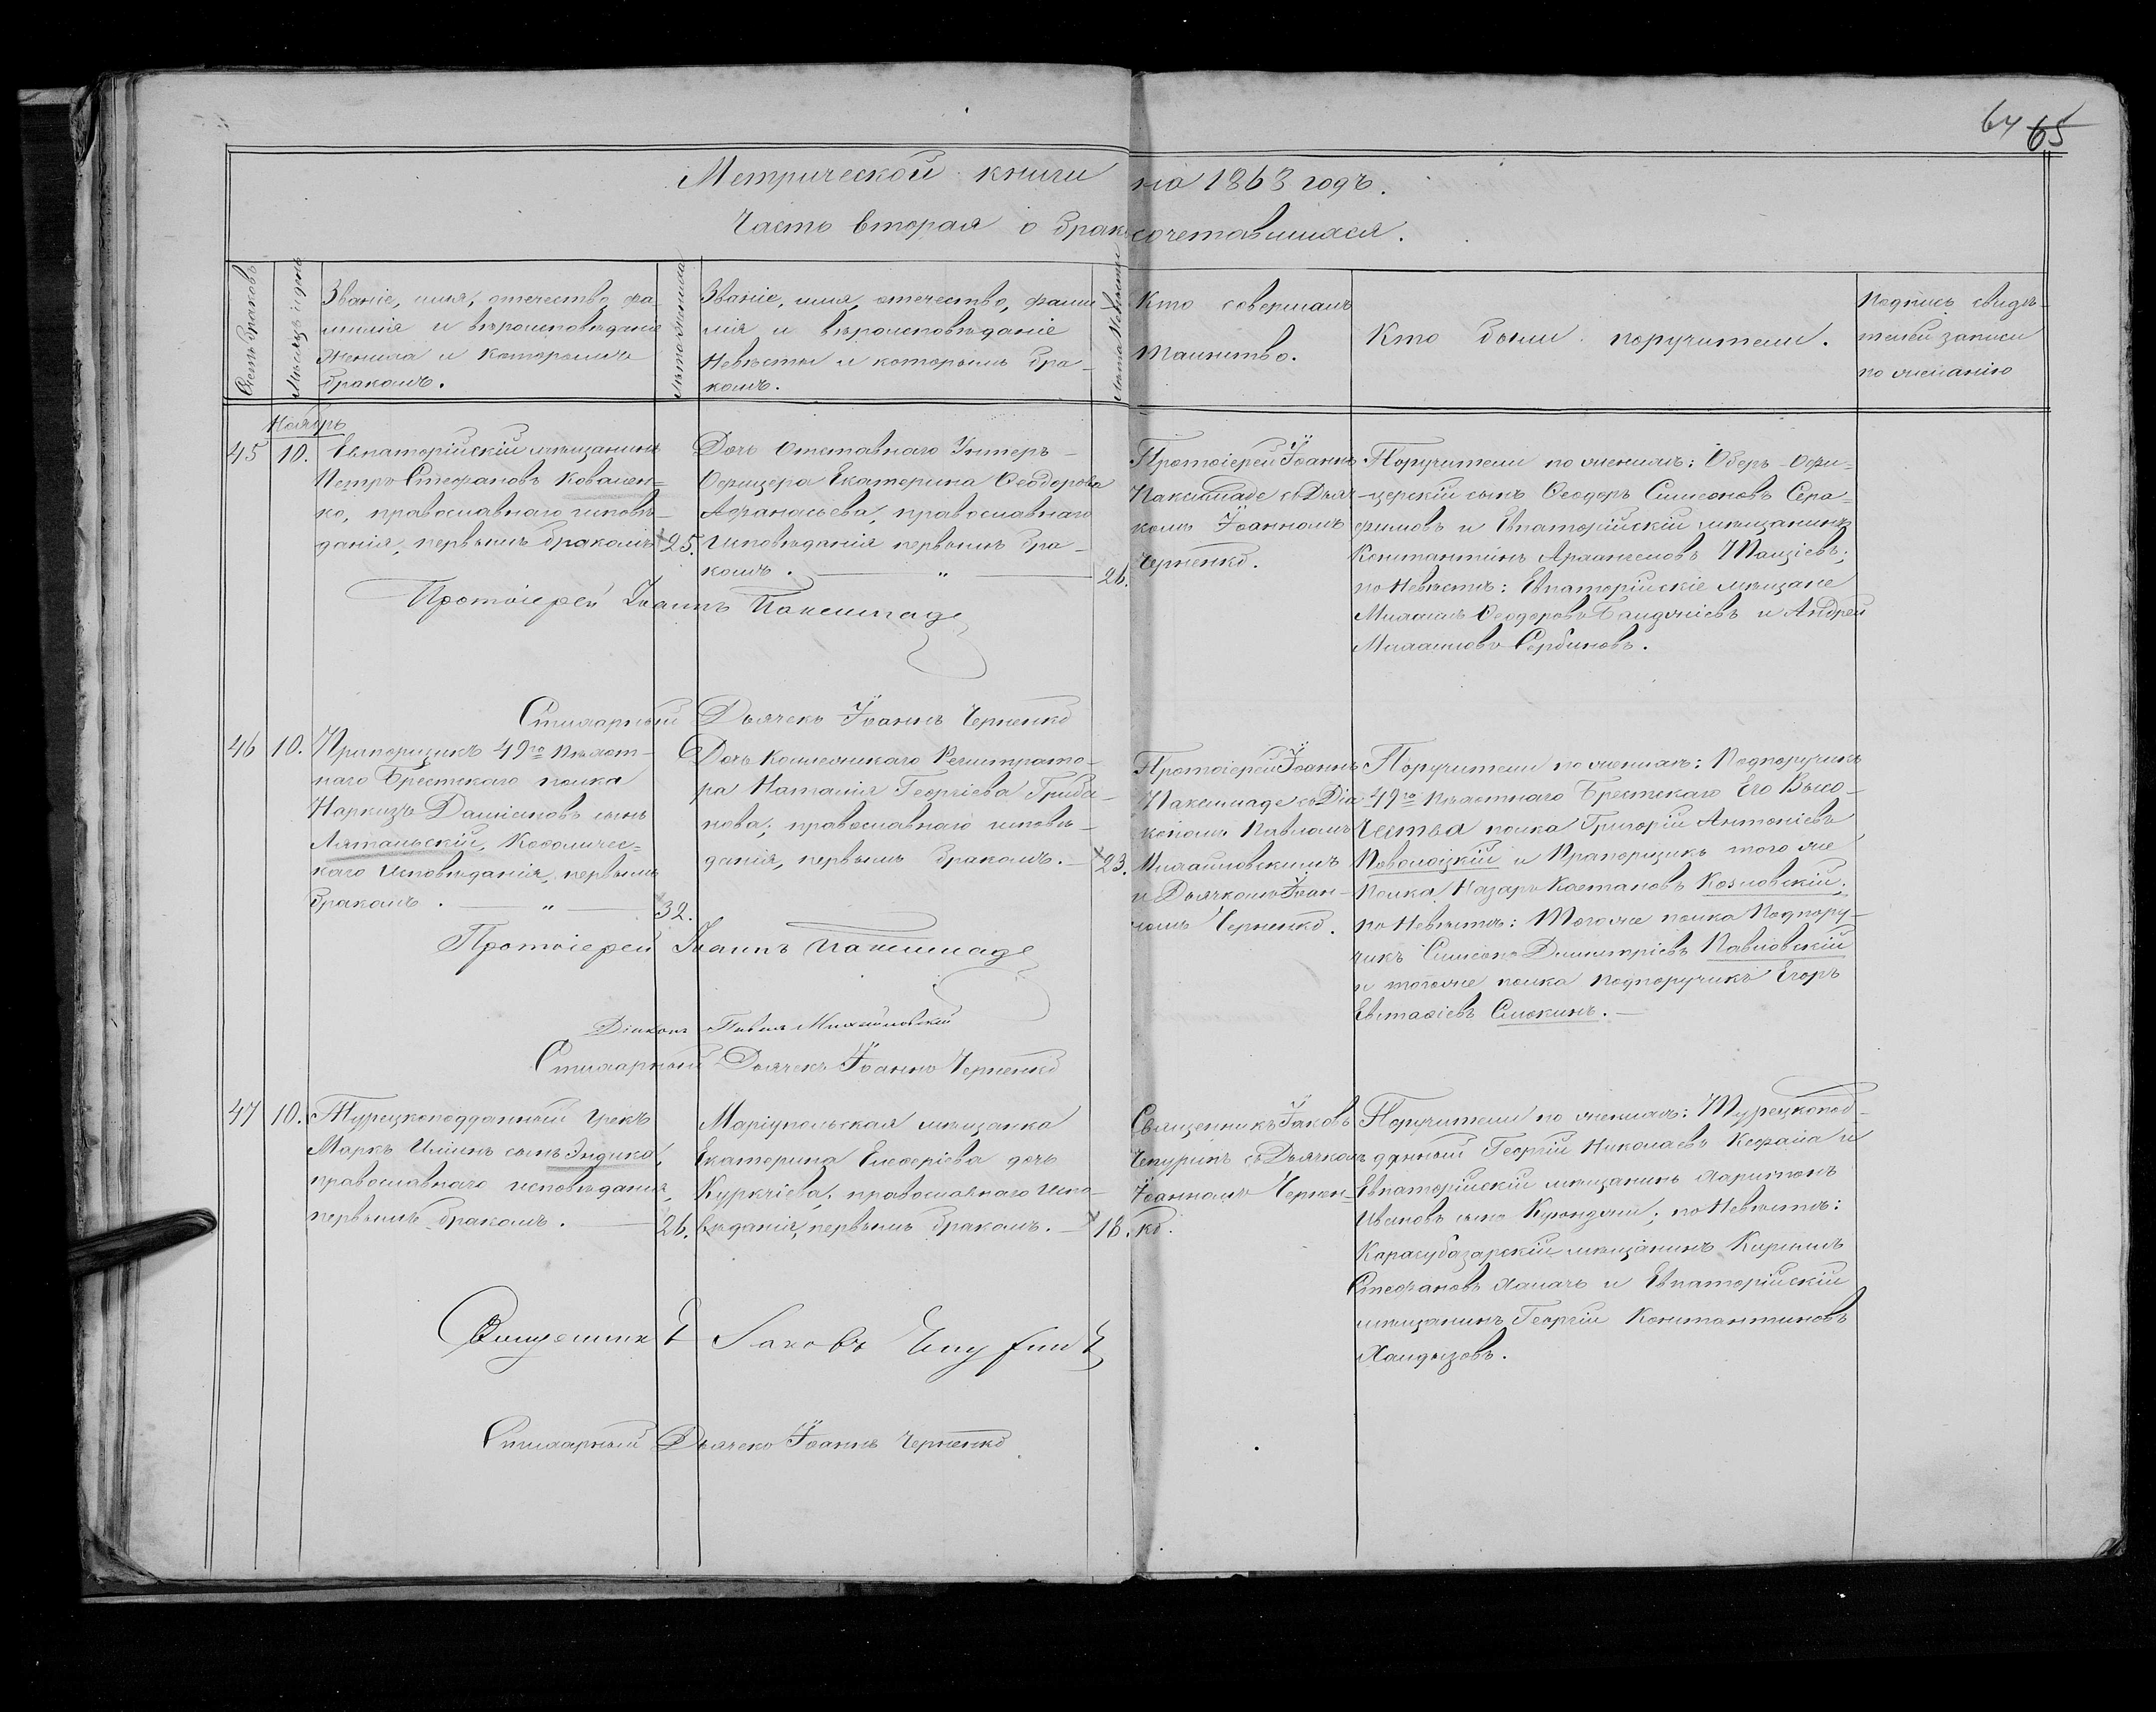 64 65
Метрической книги на 1863 годъ.
Часть вторая о бракосочетавшихся.
Счетъ браковъ
Мѣсяцъ и день
Званіе, имя, отечество, фа-
милія и вѣроисповѣданіе
Жениха и которымъ
бракомъ.
Лѣта жениха
Званіе, имя, отечество, фами-
лія и вѣроисповѣданіе
Невѣсты и которымъ бра-
комъ.
Лѣта Невѣсты
Кто совершалъ
таинство.
Кто были поручители.
Подпись свидѣ-
телей записи
по желанію
Ноябрь
45
10.
Евпаторійскій мѣщанинъ
Петръ Стефановъ Ковален-
ко, православнаго исповѣ-
данія, первымъ бракомъ
25.
Дочь отставнаго Унтеръ-
Офицера Екатерина Ѳеодорова
Афанасьева, православнаго
исповѣданія первымъ бра-
комъ.
26.
Протоіерей Іоаннъ
Паксимаде съ Дьяч-
комъ Іоанномъ
Черненко.
Поручители по женихѣ: Оберъ-Офи-
церскій сынъ Ѳеодоръ Симеоновъ Сера-
фимовъ и Евпаторійскій мѣщанинъ
Константинъ Архангеловъ
по Невѣстѣ: Евпаторійскіе мѣщане
Михаилъ Ѳеодоровъ и Андрей
Михаиловъ Сербиновъ.
Протоіерей Іоаннъ Паксимаде
Стихарный Дьячекъ Іоаннъ Черненко
46
10.
Прапорщикъ 49го Пѣхот-
наго Брестскаго полка
Наркизъ Даміановъ сынъ
Лятальскій, Католичес-
каго исповѣданія, первымъ
бракомъ.
32.
Дочь Коллежскаго Регистрато-
ра Наталія Георгіева Гриба-
нова, православнаго исповѣ-
данія, первымъ бракомъ.
23.
Протоіерей Іоаннъ
Паксимаде съ Діа-
кономъ Павломъ
Михайловскимъ
и Дьячкомъ Іоан-
номъ Черненко.
Поручители по женихѣ: Подпоручикъ
49го пѣхотнаго Брестскаго Его Высо-
чества полка Григорій Антоніевъ
Поволоцкій и Прапорщикъ того же
Полка Назаръ Каетановъ Козловскій;
по Невѣстѣ: Того же полка Подпору-
чикъ Симеонъ Димитріевъ Павловскій
и того же полка подпоручикъ Егоръ
Евстафіевъ Слюкинъ.
Протоіерей Іоаннъ Паксимаде
Діаконъ Павелъ Михайловскій
Стихарный Дьячекъ Іоаннъ Черненко
47
10.
Турецкоподданный Грекъ
Маркъ Ильинъ сынъ Эндика,
православнаго исповѣданія,
первымъ бракомъ.
26.
Маріупольская мѣщанка
Екатерина Елеѳеріева дочь
Куркчіева, православнаго испо-
вѣданія, первымъ бракомъ.
18.
Священникъ Іаковъ
Чепуринъ съ Дьячкомъ
Іоанномъ Чернен-
ко.
Поручители по женихѣ: Турецкопод-
данный Георгій Николаевъ Кефала и
Евпаторійскій мѣщанинъ Харитонъ
Ивановъ сынъ Куюнджи; по Невѣстѣ:
Карасубазарскій мѣщанинъ Кириллъ
Стефановъ Халачъ и Евпаторійскій
мѣщанинъ Георгій Константиновъ
Хандызовъ.
Священникъ Іаковъ Чепуринъ
Стихарный Дьячекъ Іоаннъ Черненко